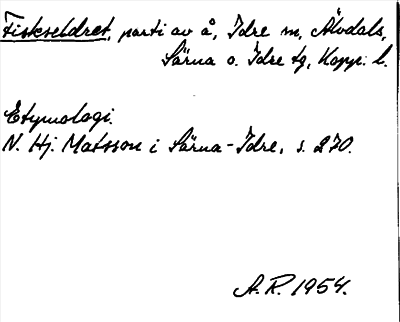 Fiskseldret, parti av å, Idre sn, Älvdals,
Särna o. Idre tg, Kopp. l.
Etymologi.
N. Hj. Matsson i Särna-Idre, s. 270.
A. R. 1954.